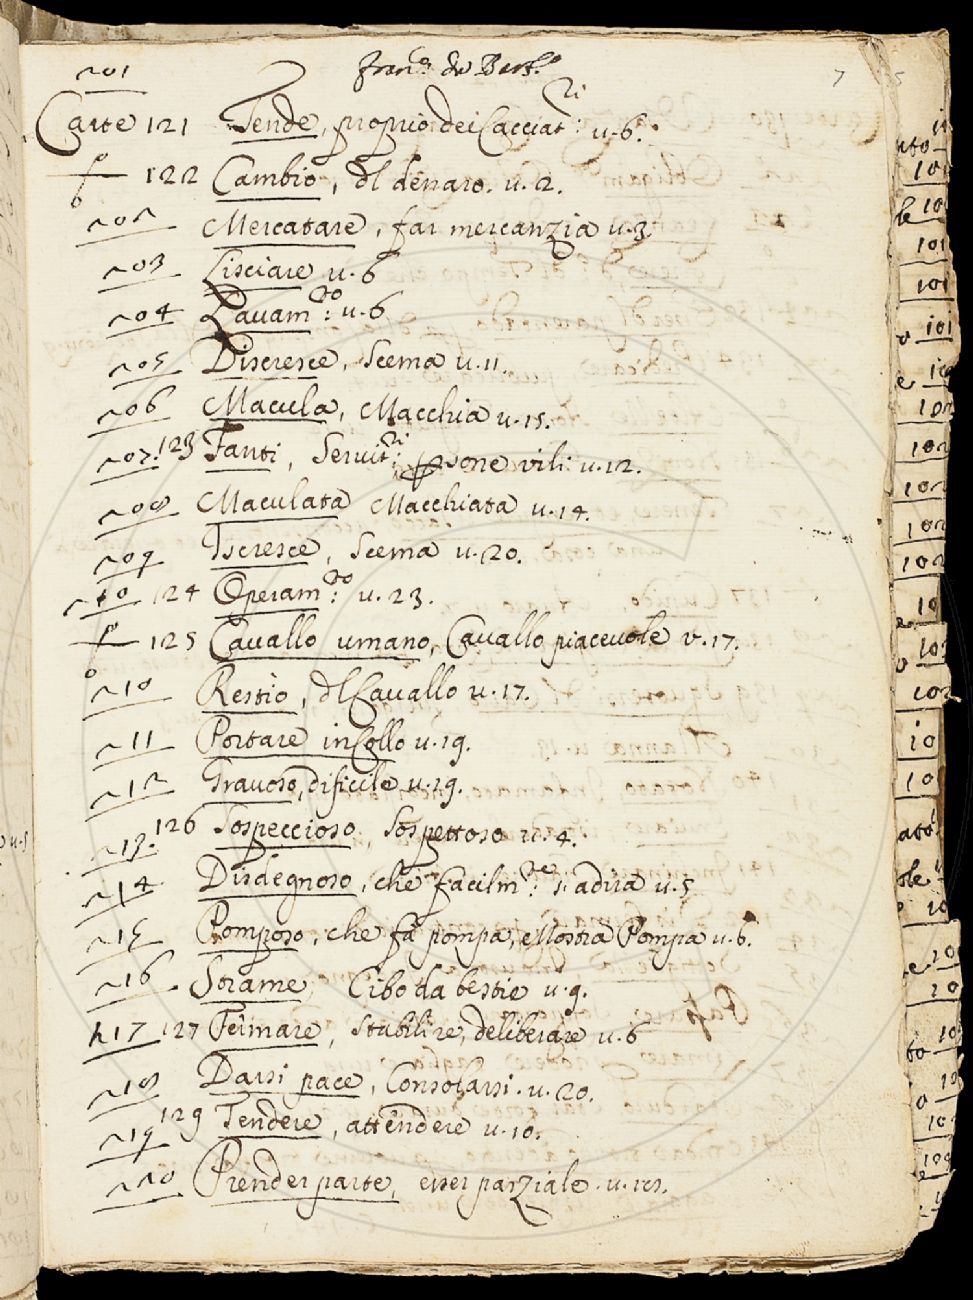 101 Franco de Barb.o 7
Carte 121 Tende, proprio dei Cacciat:ri u. 6.
122 Cambio, dl denaro. u. 2.
102 Mercatare, far mercanzia u. 3.
103 Lisciare u. 6
104 Lavam:to u. 6
105 Discresce, Scema u. 11.
106 Macula, Macchia u. 15.
107. 123 Fanti, Servit:ri, psone vili u. 12.
108 Maculata Macchiata u. 14.
109 Iscresce, Scema u. 20.
110 124 Operam:to u. 23.
125 Cavallo umano, Cavallo piacevole v. 17.
110 Restio, dl Cavallo u. 17.
111 Portare in Collo u. 19.
112 Gravoso, dificile u. 19.
113. 126 Sospeccioso, Sospettoso u. 4.
114 Disdegnoso, che facilm:te s'adira u. 5
115 Pomposo, che fà pompa, e Mostra Pompa u. 6.
116 Strame, Cibo da bestie u. 9.
117 127 Fermare, Stabilire, deliberare u. 6
118 Darsi pace, Consolarsi. u. 20.
119 129 Tendere, attendere u. 10.
120 Prender parte, esser parziale. u.